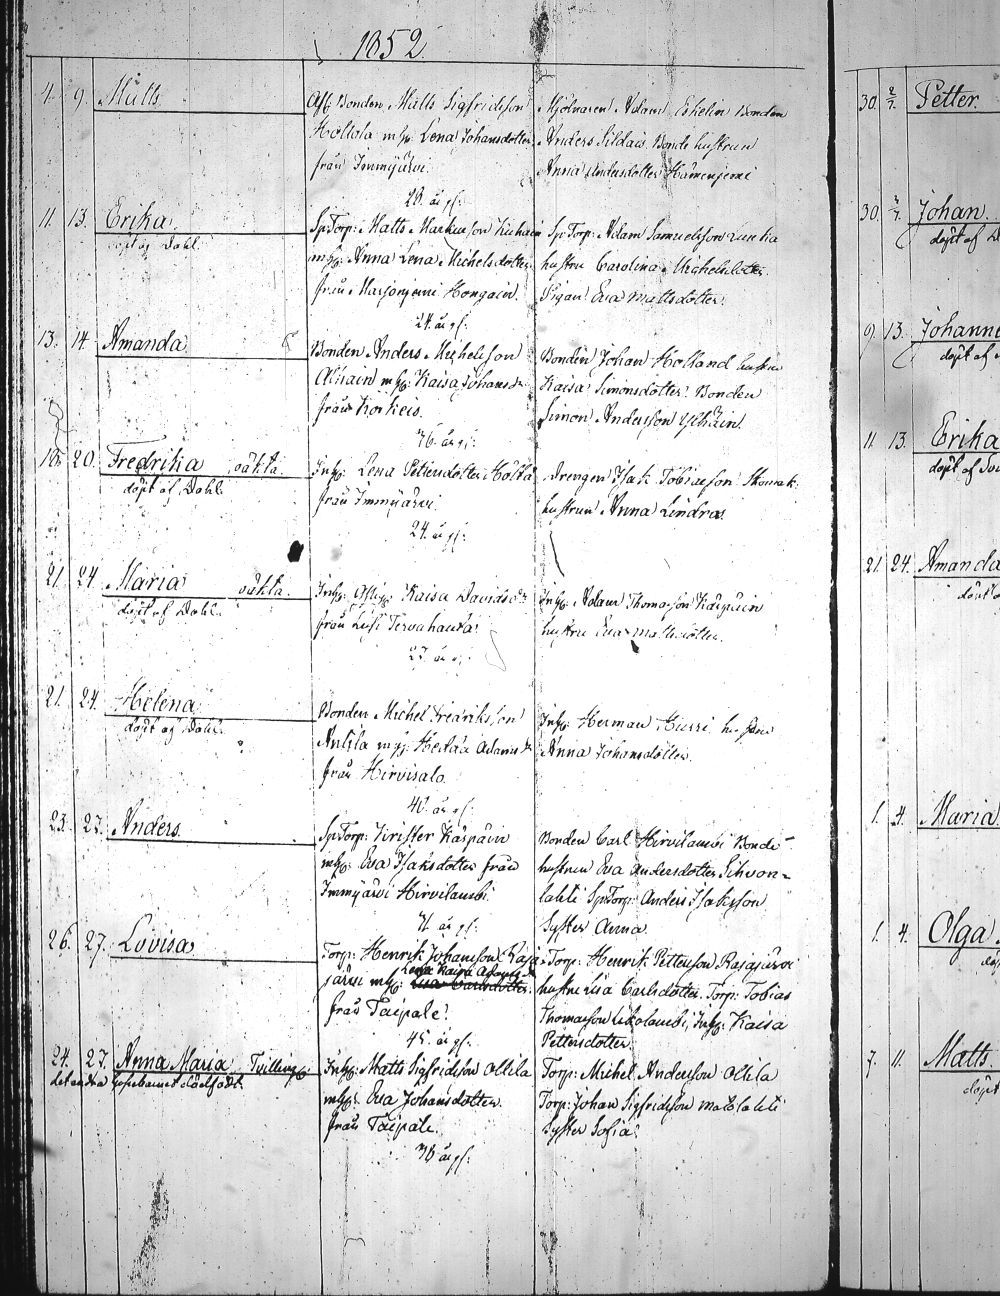 1852.
4. 9. Matts
Afsk. Bonden Matts Sigfridsson
Holtola mh: Lena Johansdotter
från Immijärvi.
29. år gl:
Mjölnaren Adam Eskelin Bonden
Anders Sildais Bonde hustrun
Anna Andersdotter
11. 13. Erika.
döpt af Dahl.
SpTorp: Matts Markusson
mh: Anna Lena Michelsdotter
från Marjoniemi Hongain.
24. år gl:
SpTorp: Adam Samuelsson
hustru Carolina Michelsdotter
Pigan Eva Mattsdotter.
13. 14. Amanda
Bonden Anders Michelsson
mh: Kaisa Johansdr
från Korkeis.
36. år gl:
Bonden Johan Holland hustru
Kaisa Simonsdotter Bonden
Simon Andersson
18. 20. Fredrika oäkta.
döpt af Dahl.
Inh: Lena Pettersdotter Holta
från Immijärvi.
24. år gl:
Drengen Isak Tobiasson
hustrun Anna Lindros.
21. 24. Maria oäkta.
döpt af Dahl.
Inh: Kaisa Davidsdr
från Tervahauta
27. år gl:
Inh: Adam Thomasson Käspäin
hustru Eva Mattsdotter.
21. 24. Helena
döpt af Dahl.
Bonden Michel Fredriksson
Anttila mh: Hedda Adamsdr
från Hirvisalo.
40. år gl:
Inh: Herman Kurri hustru
Anna Johansdotter.
23. 27. Anders.
SpTorp: Krister Käspäin
mh: Eva Isaksdotter från
Immijärvi Hirvilambi.
31. år gl:
Bonden Carl Hirvilambi Bonde-
hustrun Eva Andersdotter Sihvon=
lahti SpTorp: Anders Isaksson
Syster Anna.
26. 27. Lovisa
Torp: Henrik Johansson Raja
Lena Kaisa Adamsdr
järvi mh: Lisa Carlsdotter
från Taipale.
45. år gl:
Torp: Henrik Pettersson Rajajärvi
hustru Lisa Carlsdotter. Torp: Tobias
Thomasson Ukolambi, Inh: Kaisa
Pettersdotter.
24. 27. Anna Maria Tvilling
det andra gossebarnet dödfödt.
Inh: Matts Sigfridsson Ollila
mh: Eva Johansdotter
från Taipale.
38 år gl:
Torp: Michel Andersson Ollila
Torp: Johan Sigfridsson Matolahti
Syster Sofia.
30. 2/7. Petter
30. 4/7. Johan.
döpt af D
9. 13. Johanne
döpt af
11 13. Erika
döpt af
21 24. Amanda
döpt
1. 4. Maria
1. 4. Olga
7. 11. Matts
döpt